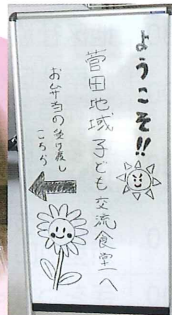 ようこそ!!
菅田地域子ども交流食堂へ
お弁当の受け渡し
こちら